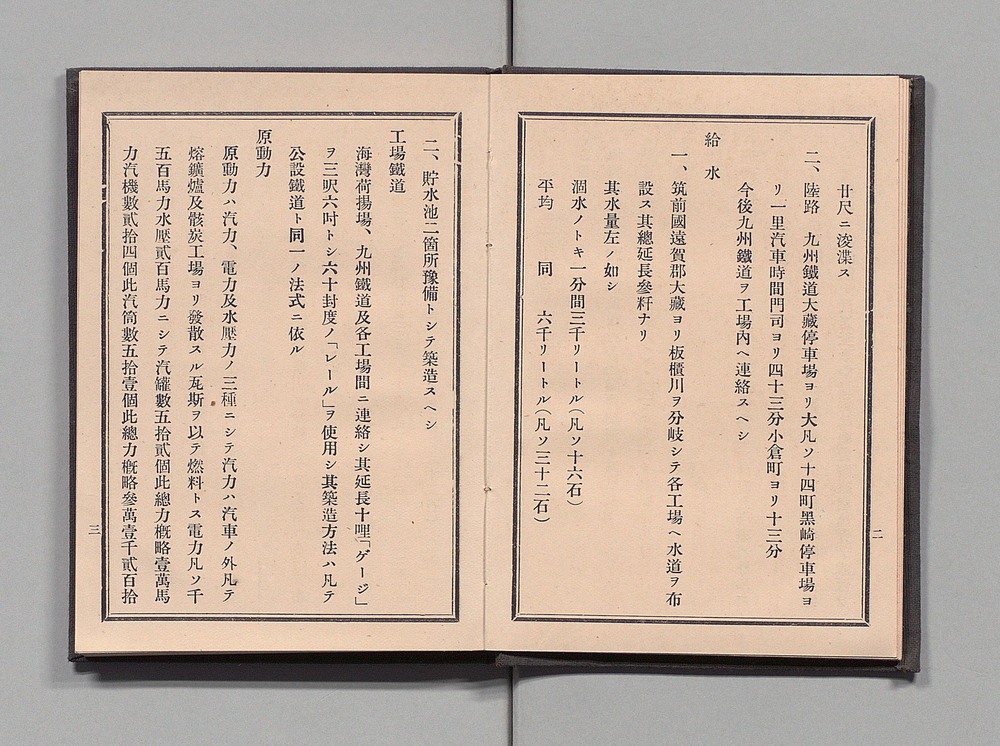 廿尺ニ浚渫ス
二、陸路　九州鐵道大藏停車場ヨリ大凡ソ十四町黑崎停車場ヨ
リ一里汽車時間門司ヨリ四十三分小倉町ヨリ十三分
今後九州鐵道ヲ工場內ヘ連絡スヘシ
給水
一、筑前國遠賀郡大藏ヨリ板櫃川ヲ分岐シテ各工場ヘ水道ヲ布
設ス其總延長參粁ナリ
其水量左ノ如シ
涸水ノトキ一分間三千リートル(凡ソ十六石)
平均　同　六千リートル(凡ソ三十二石)
二
二、貯水池二箇所豫備トシテ築造スヘシ
工場鐵道
海灣荷揚場、九州鐵道及各工場間ニ連絡シ其延長十哩「ゲージ」
ヲ三呎六吋トシ六十封度ノ「レール」ヲ使用シ其築造方法ハ凡テ
公設鐵道ト同一ノ法式ニ依ル
原動力
原動力ハ汽力、電力及水壓力ノ三種ニシテ汽力ハ汽車ノ外凡テ
熔鑛爐及骸炭工場ヨリ發散スル瓦斯ヲ以テ燃料トス電力凡ソ千
五百馬力水壓貳百馬力ニシテ汽罐數五拾貳個此總力槪略壹萬馬
力汽機數貳拾四個此汽筒數五拾壹個此總力槪略參萬壹千貳百拾
三